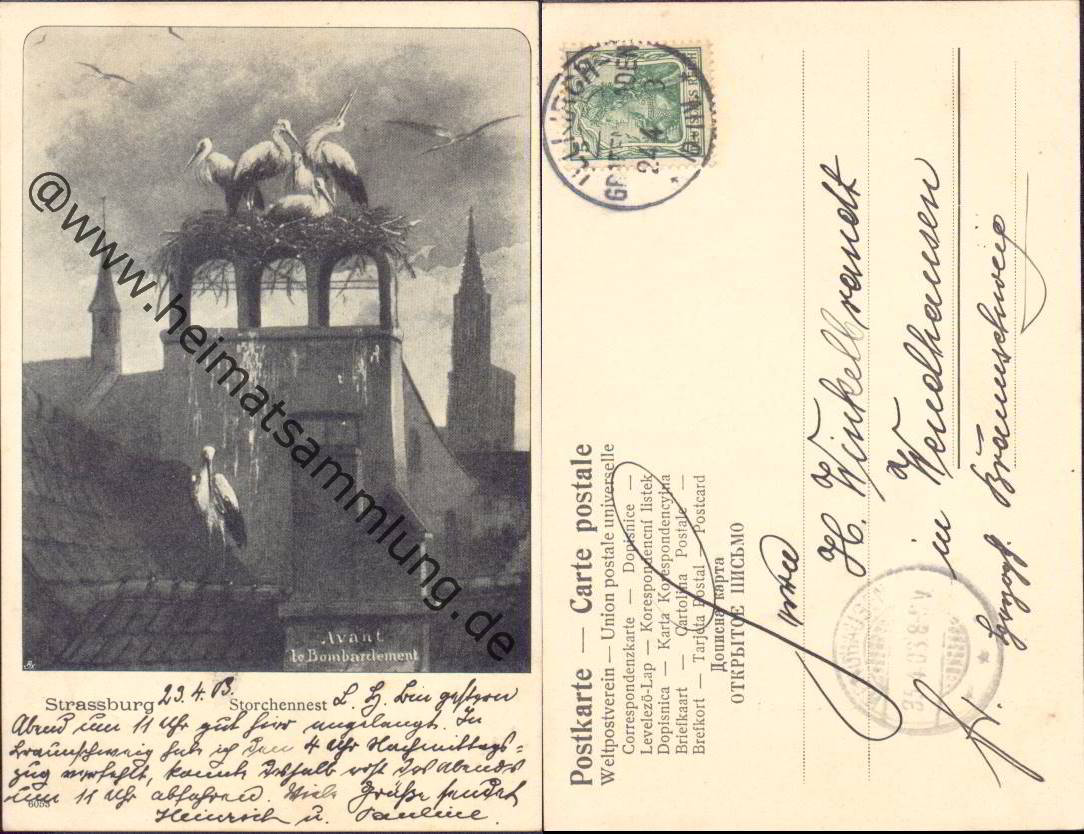 @www.heimatsammlung.de
Avant
le Bombardement
Strassburg 23.4.03. Storchennest L. H. Bin gestern
Abend um 11 Uhr gut hier angelangt. In
Braunschweig hab ich den 4 Uhr Nachmittags-
zug verfehlt, konnte deshalb erst des Abends
um 11 Uhr abfahren. Viele Grüße sendet
6053 Heinrich u. Pauline.
Postkarte — Carte postale
Weltpostverein — Union postale universelle
Correspondenzkarte — Dopisnice —
Levelező-Lap — Korespondencní listek
Dopisnica — Karta Korespondencyjna
Briefkaart — Cartolina Postale —
Brefkort — Tarjeta Postal — Postcard
Дописна карта
ОТКРЫТОЕ ПИСЬМО
H. Winkelbrandt
in Wendhausen
Herzogt. Braunschweig